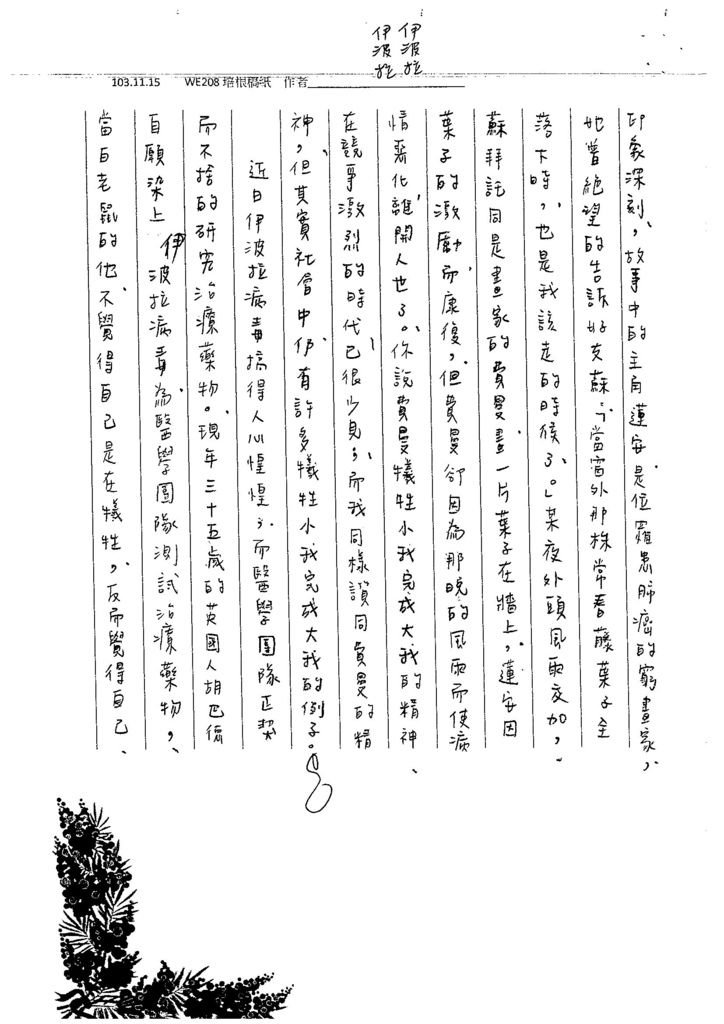 伊波拉
伊波拉
103.11.15 WE208 培根稿紙 作者
印象深刻，故事中的主角蓮安是位罹患肺癌的窮畫家，
她曾絕望的告訴好友蘇：「當窗外那株常春藤葉子全
落下時，也是我該走的時候了。」某夜外頭風雨交加，
蘇拜託同是畫家的費曼畫一片葉子在牆上，蓮安因
葉子的激勵而康復，但費曼卻因為那晚的風雨而使病
情惡化離開人世了。你說費曼犧牲小我完成大我的精神、
在競爭激烈的時代已很少見，而我同樣讚同費曼的精
神，但其實社會中仍有許多犧牲小我完成大我的例子。
近日伊波拉病毒搞得人心惶惶，而醫學團隊正契
而不捨的研究治療藥物。現年三十五歲的英國人胡巴德
自願染上伊波拉病毒為醫學團隊測試治療藥物，
當白老鼠的他不覺得自己是在犧牲，反而覺得自己、